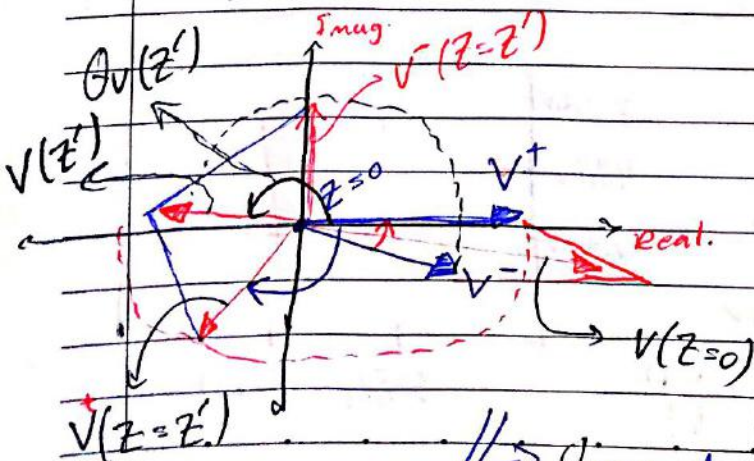 Imag.
V⁻(Z=Z')
θv(Z')
V(Z')
Z=0
V⁺
Real.
V⁻
V(Z=0)
V⁺(Z=Z')